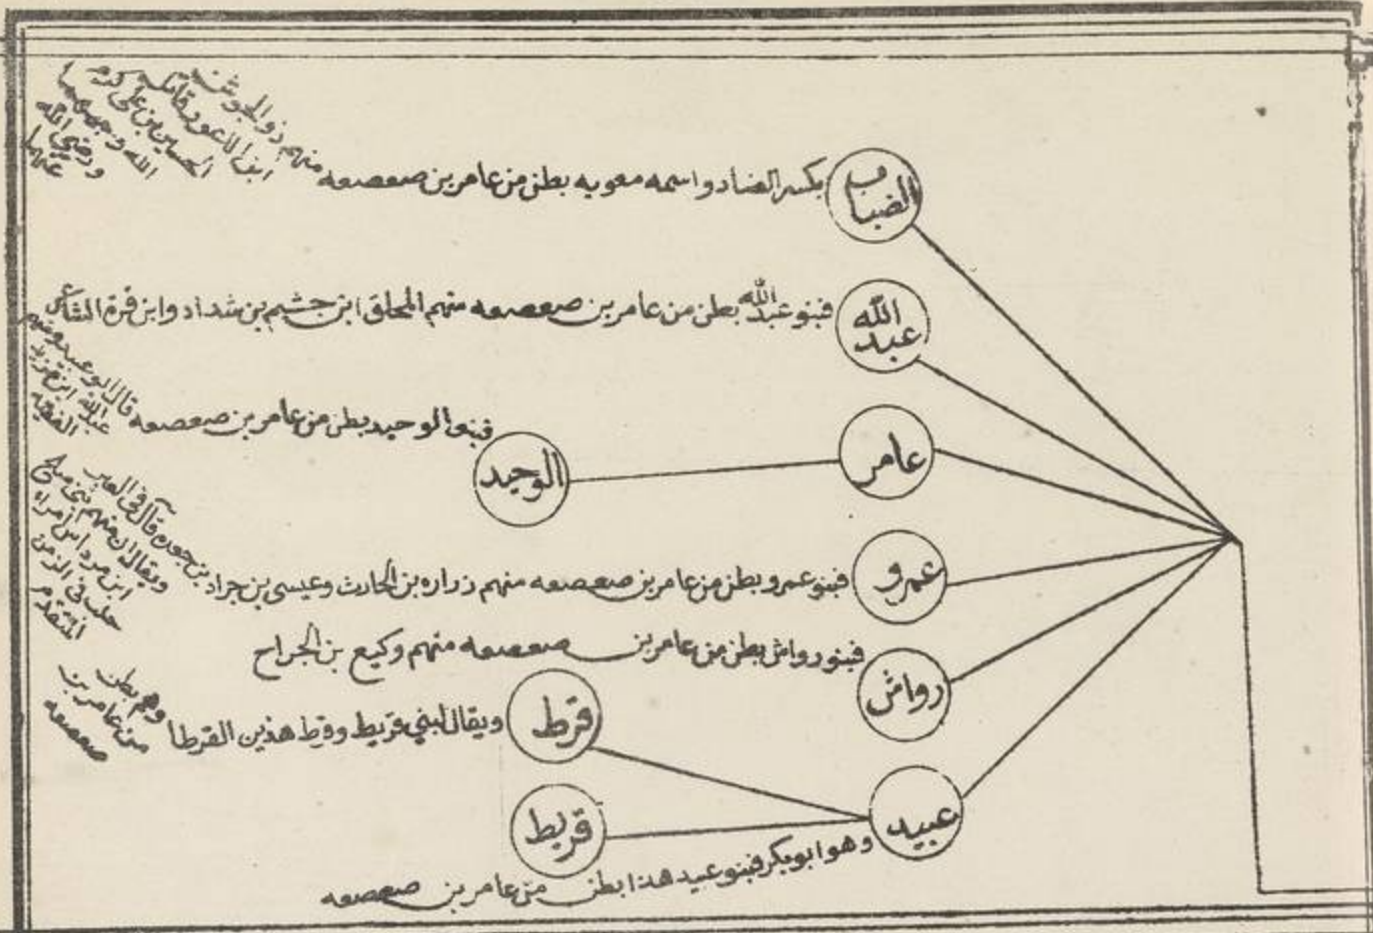 الضباب
بكسر الضاد واسمه معويه بطن من عامر بن صعصعه منهم ذو الجوشنه
ابن الاعور قاتله
الحسين بن علي كرم
الله وجههما
ورضي الله
عنهما
عبد الله
فبنو عبد الله بطن من عامر بن صعصعه منهم المحلق ابن جشيم بن شداد وابن قرة الشاعر
عامر
الوحيد
فبنو الوحيد بطن من عامر بن صعصعه قال ابو عبيد ومنهم
عبد الله ابن
الفقيه
عمرو
فبنو عمرو بطن من عامر بن صعصعه منهم زراره بن الحارث وعيسى بن جراد بن جعده قال في العبر
ويقال ان منهم بني
ابن مرداس امراء
حلب في الزمن
المتقدم
رواش
فبنو رواش بطن من عامر بن صعصعه منهم وكيع بن الجراح
قرط
ويقال لبني قريط وقرط هذين القرطا وهم بطن
من عامر بن
صعصعه
قريط
عبيد
وهو ابو بكر فبنو عبيد هذا بطن من عامر بن صعصعه